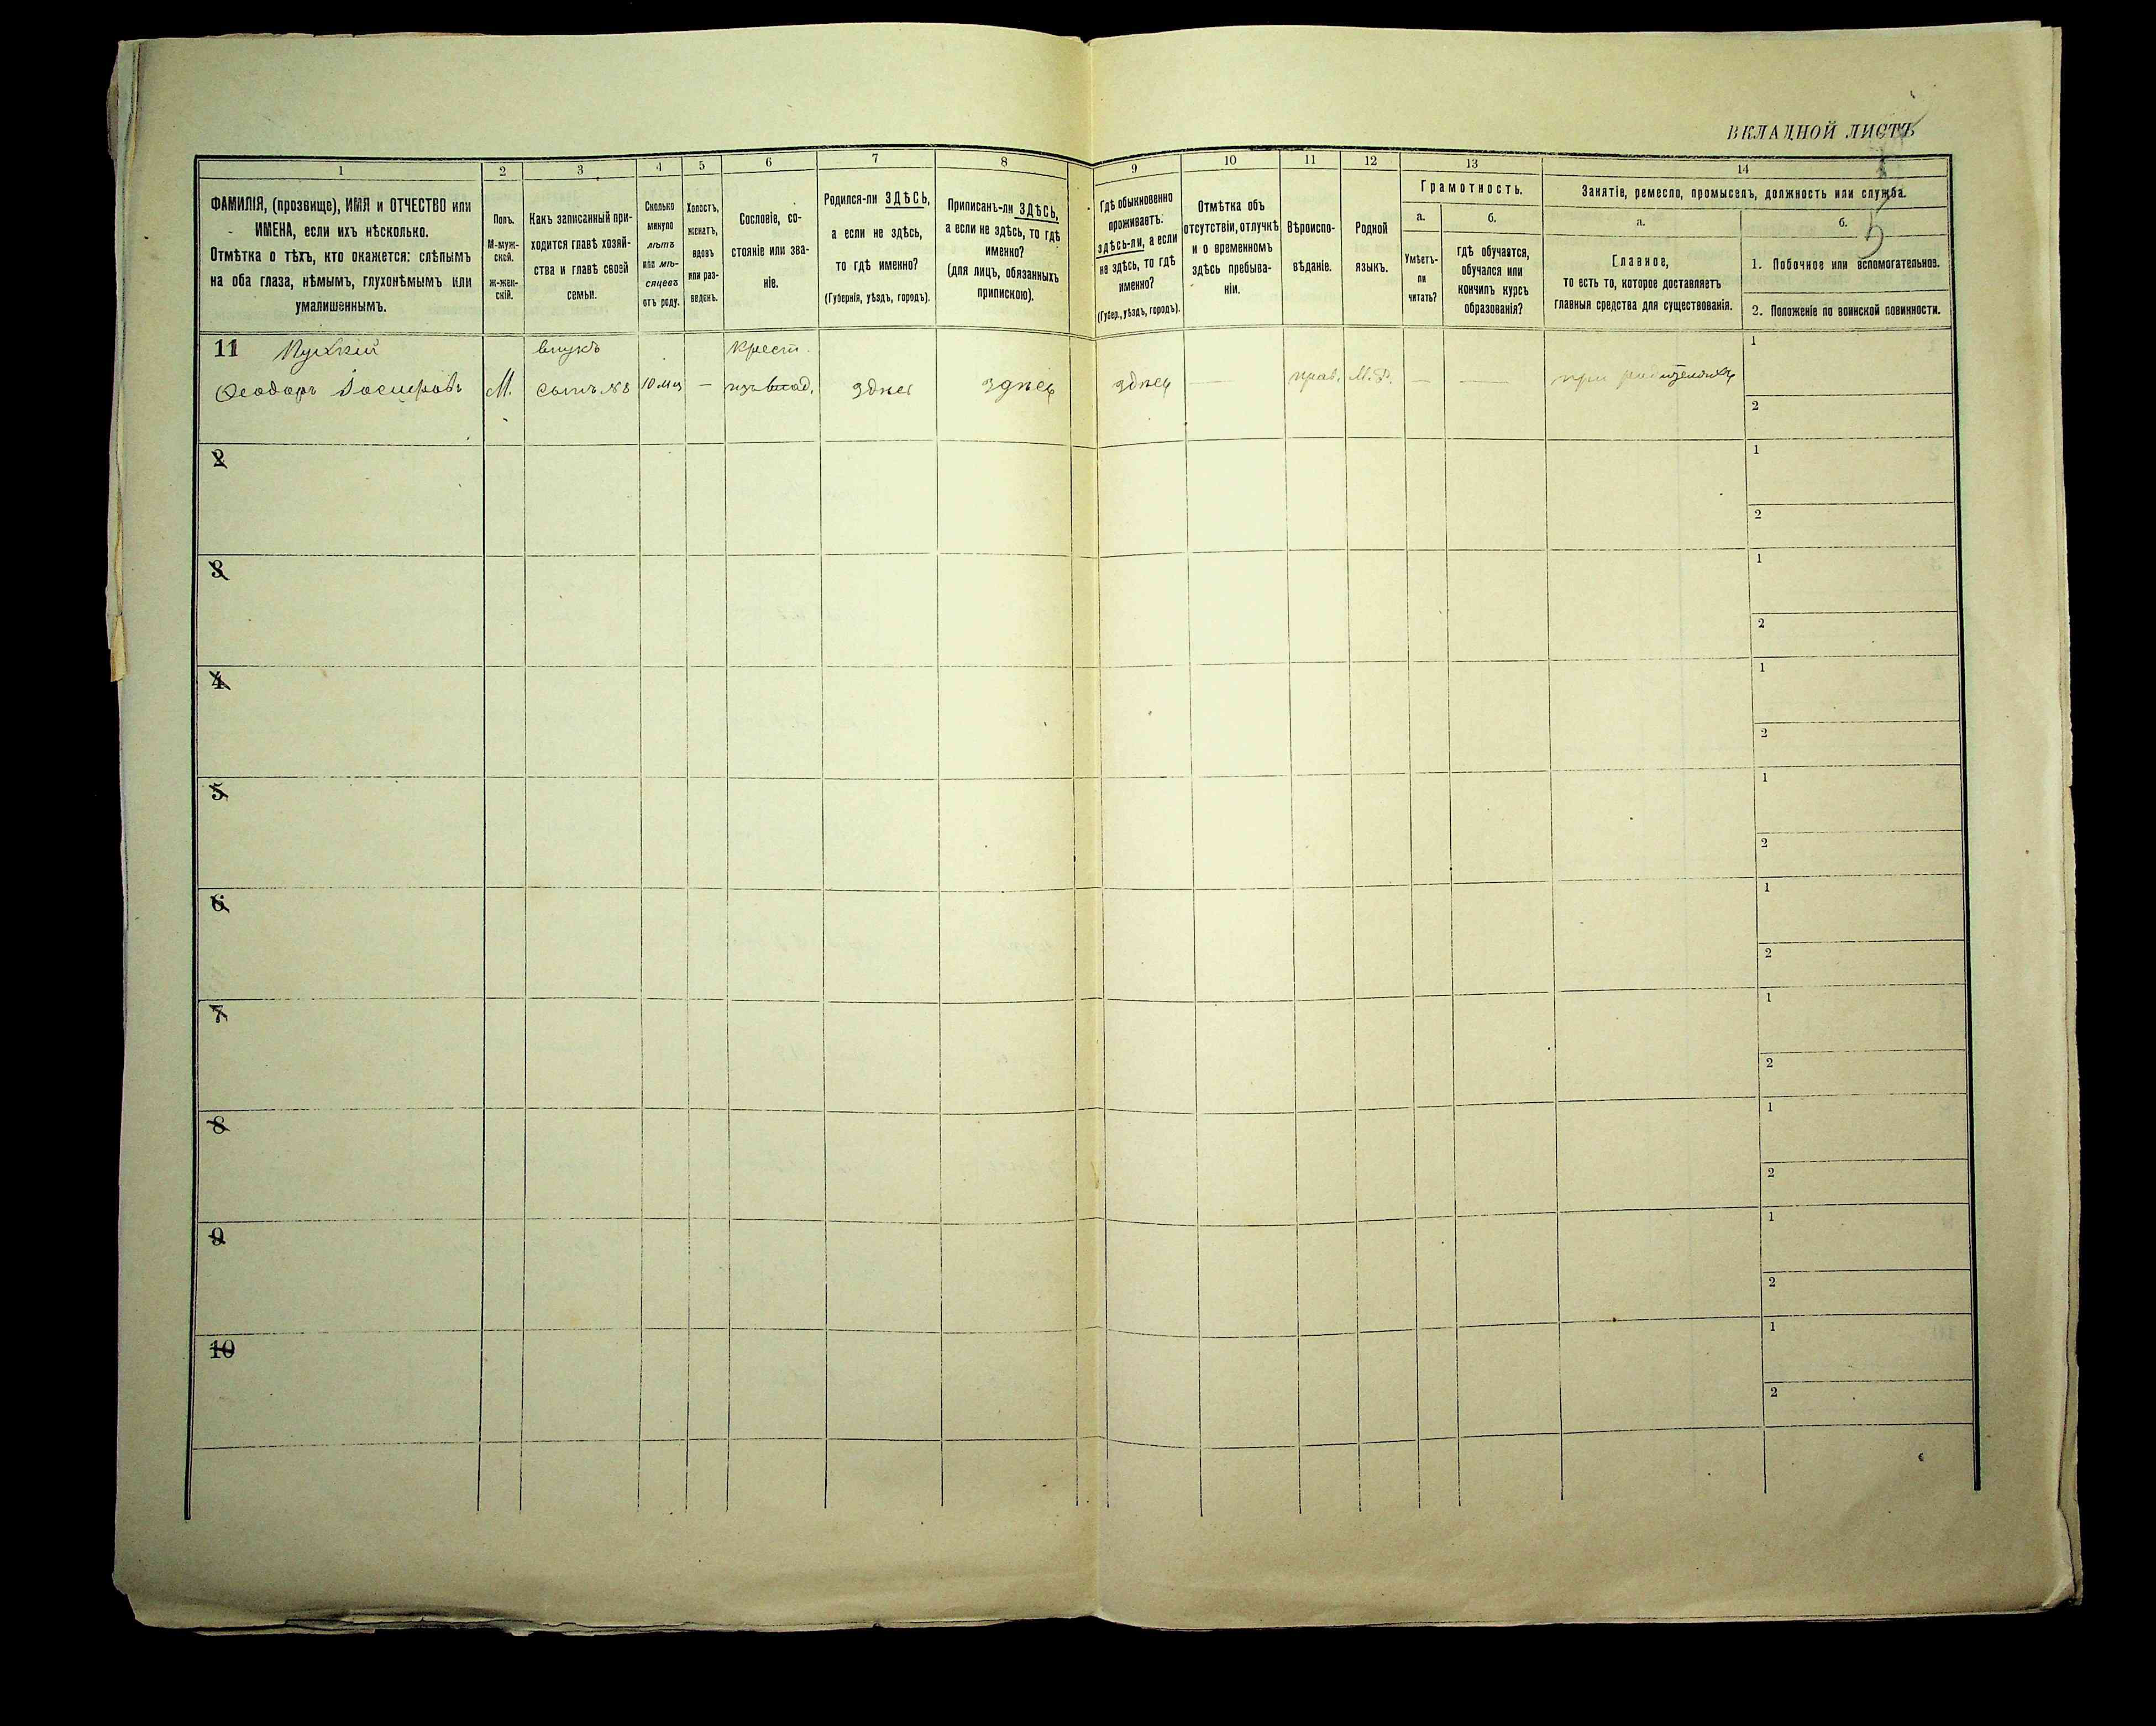 ВКЛАДНОЙ ЛИСТЪ
5
1 2 3 4 5 6 7 8 9 10 11 12 13 14
ФАМИЛІЯ, (прозвище), ИМЯ и ОТЧЕСТВО или
ИМЕНА, если ихъ нѣсколько.
Отмѣтка о тѣхъ, кто окажется: слѣпымъ
на оба глаза, нѣмымъ, глухонѣмымъ или
умалишеннымъ.
Полъ.
М-муж-
ской.
Ж-жен-
скій.
Какъ записанный при-
ходится главѣ хозяй-
ства и главѣ своей
семьи.
Сколько
минуло
лѣтъ
или мѣ-
сяцевъ
отъ роду.
Холостъ,
женатъ,
вдовъ
или раз-
веденъ.
Сословіе, со-
стояніе или зва-
ніе.
Родился-ли ЗДѢСЬ,
а если не здѣсь,
то гдѣ именно?
(Губернія, уѣздъ, городъ).
Приписанъ-ли ЗДѢСЬ,
а если не здѣсь, то гдѣ
именно?
(для лицъ, обязанныхъ
припискою).
Гдѣ обыкновенно
проживаетъ:
здѣсь-ли, а если
не здѣсь, то гдѣ
именно?
(Губер., уѣздъ, городъ).
Отмѣтка объ
отсутствіи, отлучкѣ
и о временномъ
здѣсь пребыва-
ніи.
Вѣроиспо-
вѣданіе.
Родной
языкъ.
Грамотность.
а.
Умѣетъ-
ли
читать?
б.
Гдѣ обучается,
обучался или
кончилъ курсъ
образованія?
Занятіе, ремесло, промыселъ, должность или служба.
а.
Главное,
то есть то, которое доставляетъ
главныя средства для существованія.
б.
1. Побочное или вспомогательное.
2. Положеніе по воинской повинности.
11 внукъ крест. 1
Феодоръ М. сынъ №8 10 мц — изъ влад. здѣсь здѣсь здѣсь — прав. М.Р. — — при родителяхъ
2
2 1
2
3 1
2
4 1
2
5 1
2
6 1
2
7 1
2
8 1
2
9 1
2
10 1
2